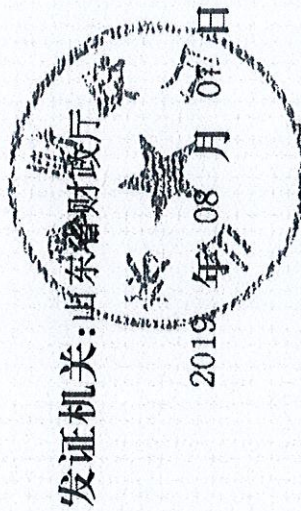 发证机关:山东省财政厅
2019 年 08 月 07 日